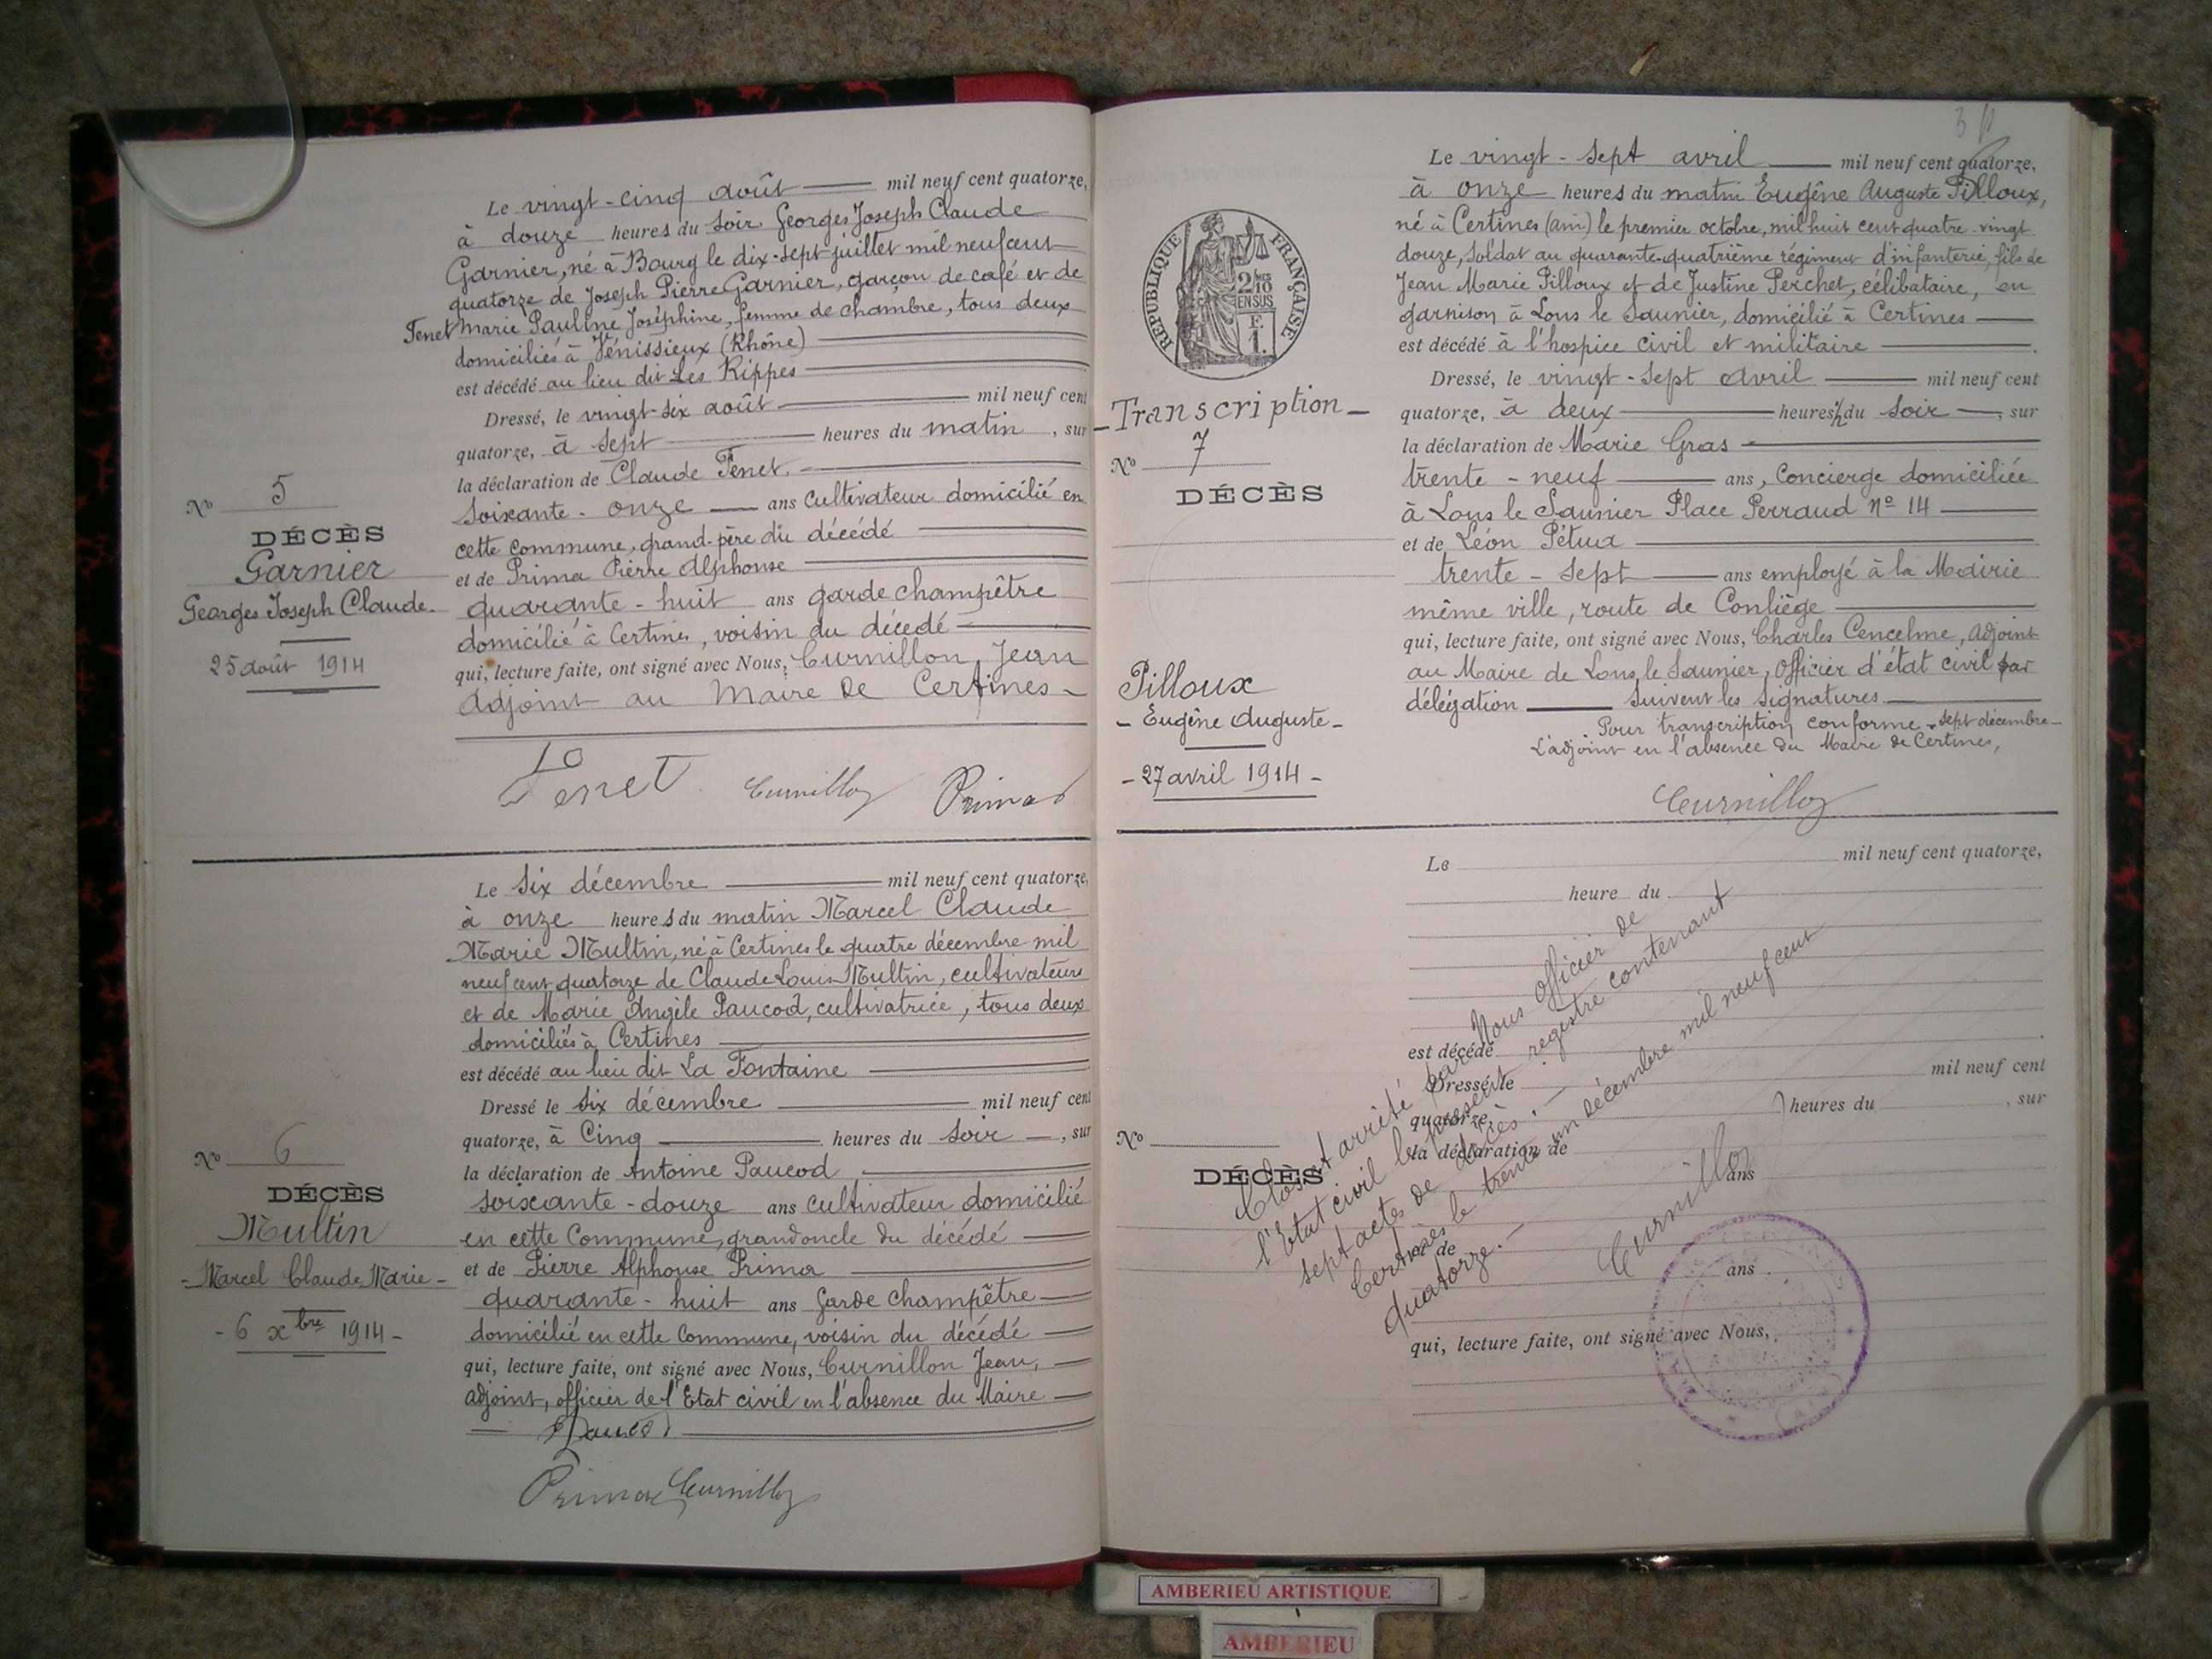 Le vingt-cinq août mil neuf cent quatorze,
à douze heures du soir Georges Joseph Claude
Garnier, né à Bourg le dix-sept juillet mil neuf cent
quatorze de Joseph Pierre Garnier, garçon de café et de
Tenet Marie Pauline Joséphine, femme de chambre, tous deux
domiciliés à Vénissieux (Rhône)
est décédé au lieu dit Les Rippes
Dressé, le vingt-six août mil neuf cent
quatorze, à sept heures du matin, sur
la déclaration de Claude Tenet,
soixante-onze ans cultivateur domicilié en
cette commune, grand-père du décédé
et de Prima Pierre Alphonse
quarante-huit ans garde champêtre
domicilié à Certines, voisin du décédé
qui, lecture faite, ont signé avec Nous, Curnillon Jean
Adjoint au Maire de Certines
N° 5
DÉCÈS
Garnier
Georges Joseph Claude
25 août 1914
Tenet Curnillon Prima
Le six décembre mil neuf cent quatorze,
à onze heures du matin Marcel Claude
Marie Multin, né à Certines le quatre décembre mil
neuf cent quatorze de Claude Louis Multin, cultivateur
et de Marie Angèle Paucod, cultivatrice, tous deux
domiciliés à Certines
est décédé au lieu dit La Fontaine
Dressé le six décembre mil neuf cent
quatorze, à Cinq heures du soir, sur
la déclaration de Antoine Paucod
soixante-douze ans cultivateur domicilié
en cette Commune, grand oncle du décédé
et de Pierre Alphonse Prima
quarante-huit ans Garde Champêtre
domicilié en cette Commune, voisin du décédé
qui, lecture faite, ont signé avec Nous, Curnillon Jean,
adjoint, officier de l'Etat civil en l'absence du Maire
Paucod
Prima Curnillon
N° 6
DÉCÈS
Multin
- Marcel Claude Marie -
- 6 xbre 1914 -
RÉPUBLIQUE FRANÇAISE
2/10 EN SUS
F. 1.
Transcription
N° 7
DÉCÈS
Pilloux
- Eugène Auguste -
- 27 avril 1914 -
Le vingt-sept avril mil neuf cent quatorze,
à onze heures du matin Eugène Auguste Pilloux,
né à Certines (Ain) le premier octobre, mil huit cent quatre-vingt
douze, soldat au quarante-quatrième régiment d'infanterie, fils de
Jean Marie Pilloux et de Justine Perchet, célibataire, en
garnison à Lons le Saunier, domicilié à Certines
est décédé à l'hospice civil et militaire
Dressé, le vingt-sept avril mil neuf cent
quatorze, à deux heures ½ du soir, sur
la déclaration de Marie Gras
trente-neuf ans, Concierge domiciliée
à Lons le Saunier Place Perraud N° 14
et de Léon Pétua
trente-sept ans employé à la Mairie
même ville, route de Conliège
qui, lecture faite, ont signé avec Nous, Charles Cencelme, Adjoint
au Maire de Lons le Saunier, Officier d'état civil par
délégation suivent les signatures
Pour transcription conforme, sept décembre
L'adjoint en l'absence du Maire de Certines,
Curnillon
Le mil neuf cent quatorze,
heure du
est décédé
Dressé, le mil neuf cent
quatorze, heures du , sur
la déclaration de
ans
et de
ans
qui, lecture faite, ont signé avec Nous,
N°
DÉCÈS
Clos et arrêté par Nous officier de
l'Etat civil le présent registre contenant
sept actes de décès.
Certines le trente un décembre mil neuf cent
quatorze.
Curnillon
(AIN)
AMBERIEU ARTISTIQUE
AMBERIEU